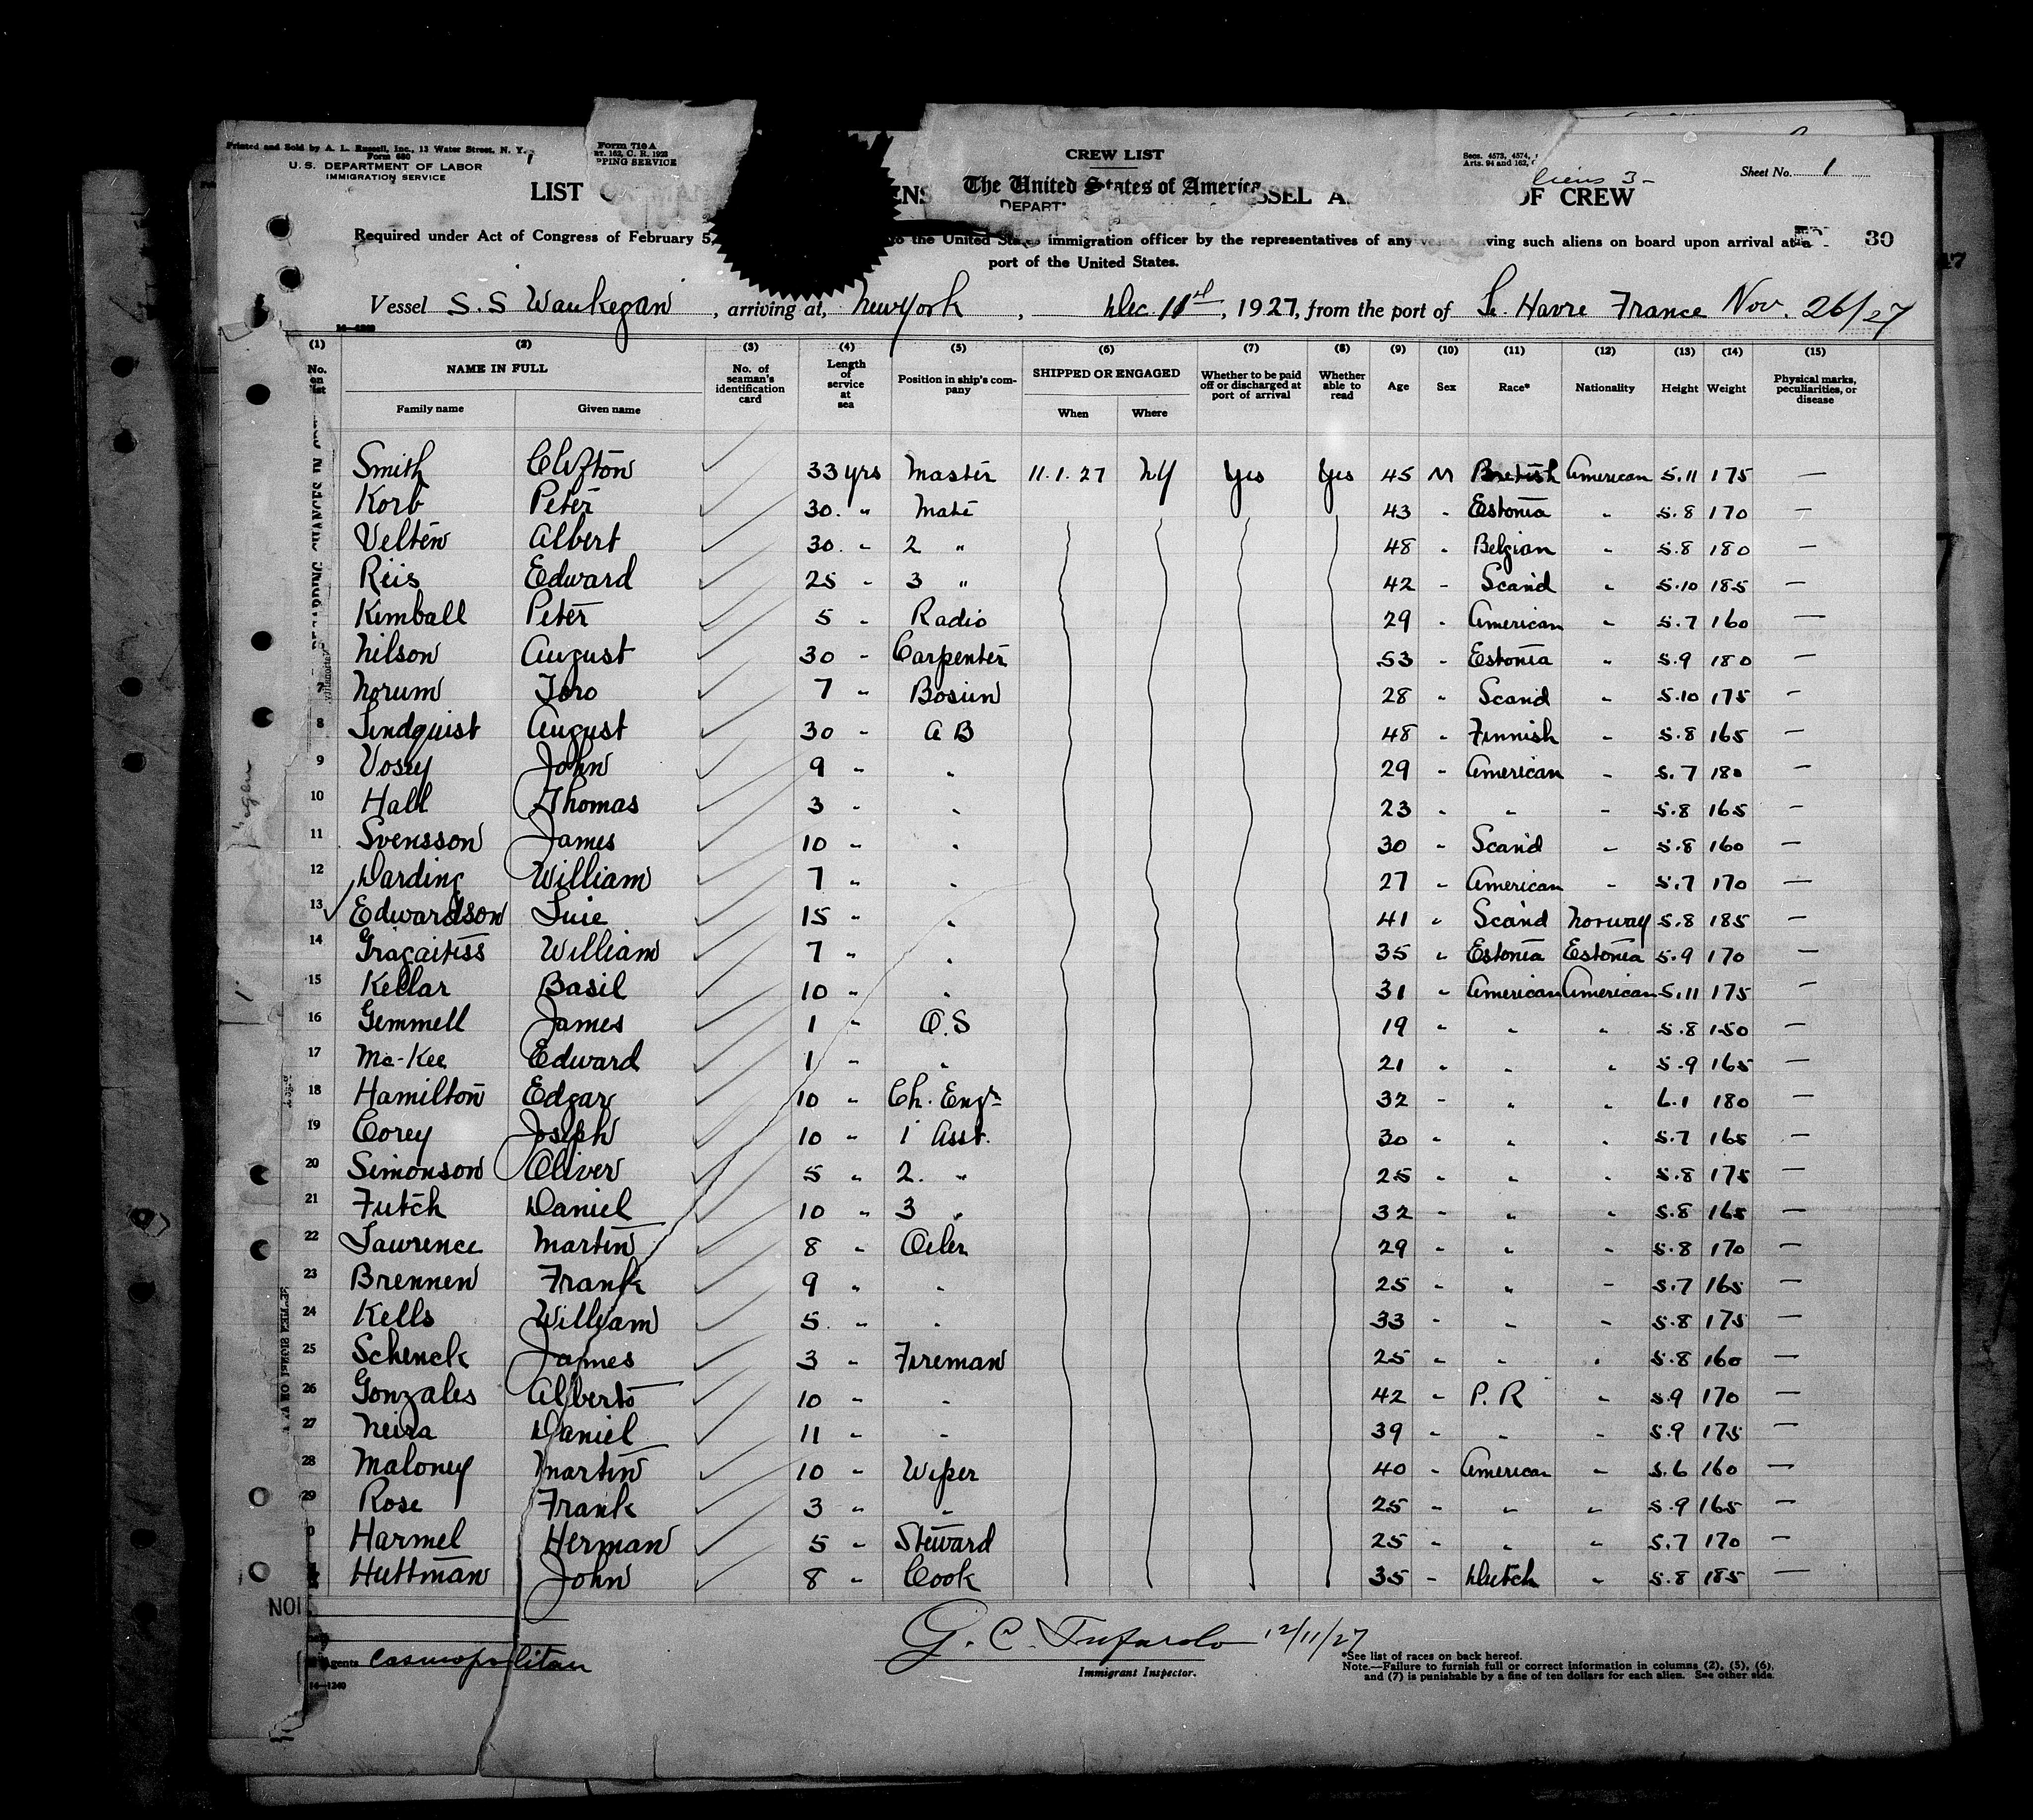 Printed and Sold by A. L. Russell, Inc., 13 Water Street, N. Y.
Form 680
U. S. DEPARTMENT OF LABOR
IMMIGRATION SERVICE
Form 710 A
RT. 162, C. R. 1923
PPING SERVICE
CREW LIST
The United States of America
DEPART
Secs. 4573, 4574,
Arts. 94 and 162,
liens 3-
Sheet No. 1
LIST ENS SSEL AS OF CREW
Required under Act of Congress of February 5, to the United States immigration officer by the representatives of any vessel having such aliens on board upon arrival at a
port of the United States.
30
Vessel S.S Waukegan, arriving at, New York, Dec 11th, 1927, from the port of Le. Havre France Nov. 26/27
14-1240
(1) (2) (3) (4) (5) (6) (7) (8) (9) (10) (11) (12) (13) (14) (15)
No. on list NAME IN FULL Family name Given name No. of seaman's identification card Length of service at sea Position in ship's company SHIPPED OR ENGAGED When Where Whether to be paid off or discharged at port of arrival Whether able to read Age Sex Race* Nationality Height Weight Physical marks, peculiarities, or disease
Smith Clifton 33 yrs Master 11.1.27 NY Yes Yes 45 M British American 5.11 175 —
Korb Peter 30 " Mate 43 " Estonia " 5.8 170 —
Velten Albert 30 " 2 " 48 " Belgian " 5.8 180 —
Reis Edward 25 " 3 " 42 " Scand " 5.10 185 —
Kimball Peter 5 " Radio 29 " American " 5.7 160 —
Nilson August 30 " Carpenter 53 " Estonia " 5.9 180 —
7 Norum Toro 7 " Bosun 28 " Scand " 5.10 175 —
8 Lindquist August 30 " A B 48 " Finnish " 5.8 165 —
9 Vosey John 9 " " 29 " American " 5.7 180 —
10 Hall Thomas 3 " " 23 " " " 5.8 165 —
11 Svensson James 10 " " 30 " Scand " 5.8 160 —
12 Darding William 7 " " 27 " American " 5.7 170 —
13 Edwardson Luie 15 " " 41 " Scand Norway 5.8 185 —
14 Gragaitiss William 7 " " 35 " Estonia Estonia 5.9 170 —
15 Kellar Basil 10 " " 31 " American American 5.11 175 —
16 Gemmell James 1 " O.S 19 " " " 5.8 150 —
17 Mc-Kee Edward 1 " " 21 " " " 5.9 165 —
18 Hamilton Edgar 10 " Ch. Engr 32 " " " 6.1 180 —
19 Corey Joseph 10 " 1 Asst. 30 " " " 5.7 165 —
20 Simonson Oliver 5 " 2. " 25 " " " 5.8 175 —
21 Futch Daniel 10 " 3 " 32 " " " 5.8 165 —
22 Lawrence Martin 8 " Oiler 29 " " " 5.8 170 —
23 Brennen Frank 9 " " 25 " " " 5.7 165 —
24 Kells William 5 " " 33 " " " 5.8 175 —
25 Schenck James 3 " Fireman 25 " " " 5.8 160 —
26 Gonzales Alberto 10 " " 42 " P. R " 5.9 170 —
27 Neira Daniel 11 " " 39 " " " 5.9 175 —
28 Maloney Martin 10 " Wiper 40 " American " 5.6 160 —
29 Rose Frank 3 " " 25 " " " 5.9 165 —
Harmel Herman 5 " Steward 25 " " " 5.7 170 —
Huttman John 8 " Cook 35 " Dutch " 5.8 185 —
NOI
Agents Cosmopolitan
14-1240
G. C. Tufarolo 12/11/27
Immigrant Inspector.
*See list of races on back hereof.
Note.—Failure to furnish full or correct information in columns (2), (5), (6),
and (7) is punishable by a fine of ten dollars for each alien. See other side.